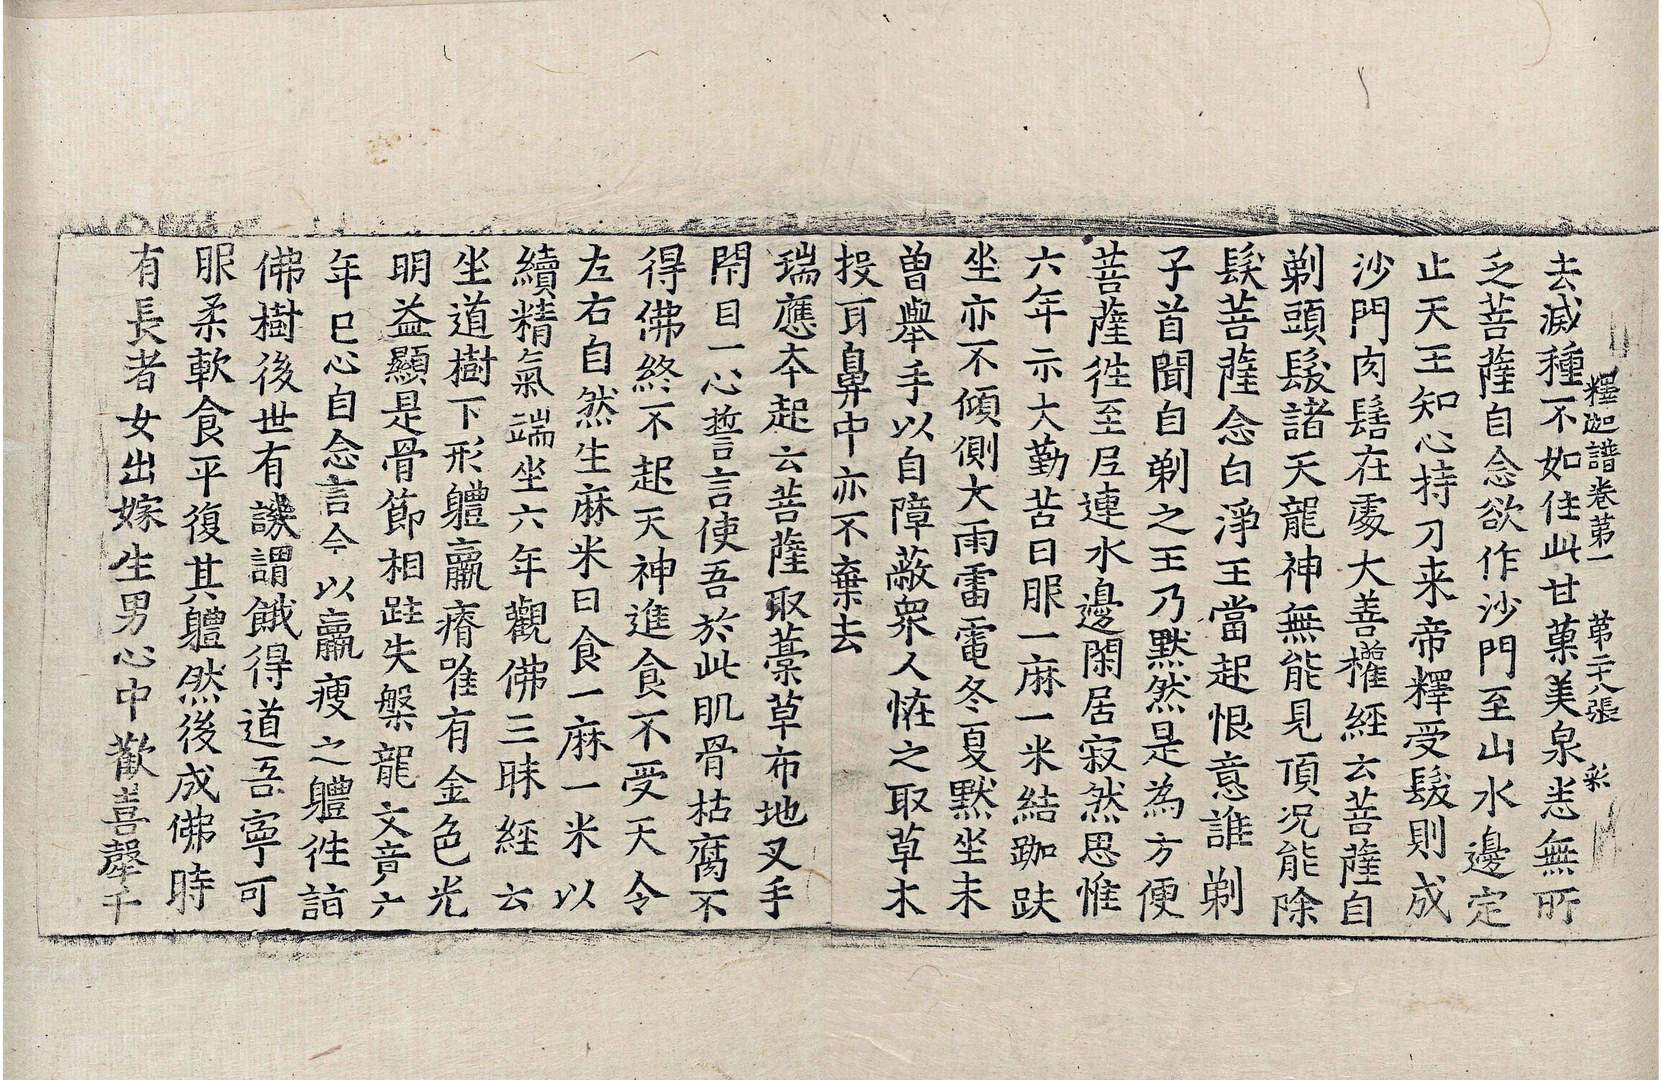 釋迦譜卷第一 第二十八張 彩
去滅種不如住此甘菓美泉恙無所
乏菩薩自念欲作沙門至山水邊定
止天王知心持刀来帝釋受髮則成
沙門肉髻在處大善權經云菩薩自
剃頭髮諸天龍神無能見頂况能除
髮菩薩念白淨王當起恨意誰剃
子首聞自剃之王乃默然是為方便
菩薩徃至𡰱連水邊閑居寂然思惟
六年示大勤苦日服一麻一米結跏趺
坐亦不傾側大雨雷電冬夏默坐未
曽舉手以自障蔽衆人恠之取草木
投耳鼻中亦不棄去
瑞應夲起云菩薩取藁草布地叉手
閇目一心誓言使吾於此肌骨枯腐不
得佛終不起天神進食不受天令
左右自然生麻米日食一麻一米以
續精氣端坐六年觀佛三昧經云
坐道樹下形軆羸瘠唯有金色光
明益顯是骨節相跓失槃龍文音六
年巳心自念言今以羸瘦之軆徃詣
佛樹後世有譏謂餓得道吾寧可
服柔軟食平復其軆然後成佛時
有長者女出嫁生男心中歡喜聲千